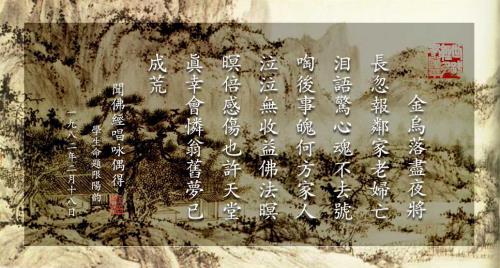 金烏落盡夜將
長忽報鄰家老婦亡
泪語驚心魂不去號
啕後事魄何方家人
泣泣無收益佛法暝
暝倍感傷也許天堂
真幸會憐翁舊夢已
成荒
聞佛經唱咏偶得
學生命題限陽韵
一九八二年二月十八日